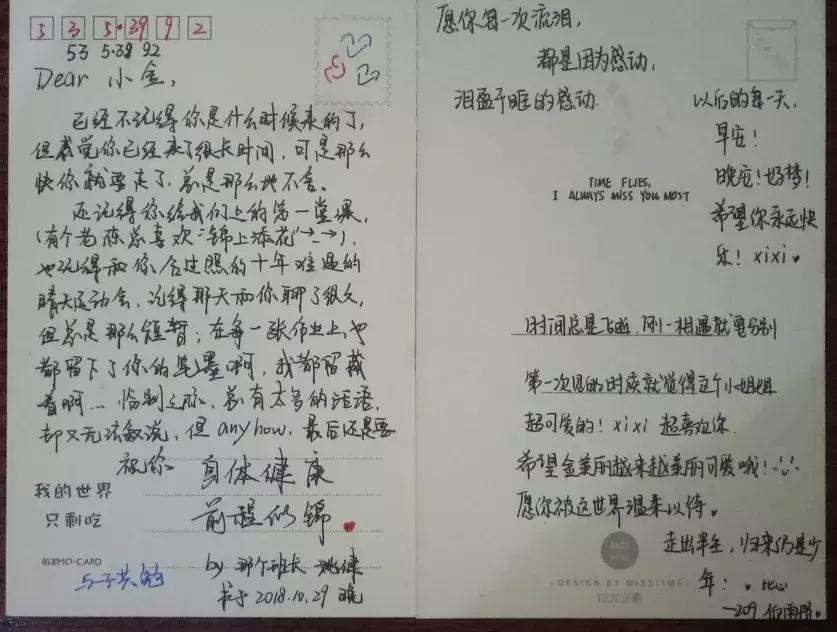 5 3 5·39 9 2
53 5·39 92
Dear 小金,
已经不记得你是什么时候来的了,
但感觉你已经来了很长时间,可是那么
快你就要走了,总是那么地不舍。
还记得你给我们上的第一堂课,
(有个老陈总喜欢“锦上添花”→_→),
也记得和你合过照的十年难遇的
晴天运动会,记得那天和你聊了很久,
但总是那么短暂;在每一张作业上,也
都留下了你的笔墨啊,我都留藏
着啊…临别之际,总有太多的话语,
却又无法叙说,但anyhow,最后还是要
祝你 身体健康
前程似锦
我的世界
只剩吃
MO·CARD
与子共勉
by 那个班长
书于2018.10.29 晚
愿你每一次流泪,
都是因为感动,
泪盈于眶的感动.
以后的每一天,
早安!
晚安!好梦!
希望你永远快
乐!xixi
TIME FLIES,
I ALWAYS MISS YOU MOST
时间总是飞逝,刚一相遇就要分别
第一次见的时候就觉得这个小姐姐
超可爱的!xixi 超喜欢你.
希望金美丽越来越美丽可爱哦!
愿你被这世界温柔以待。
走出半生,归来仍是少
年! 比心
DESIGN BY MISSTIME
—209